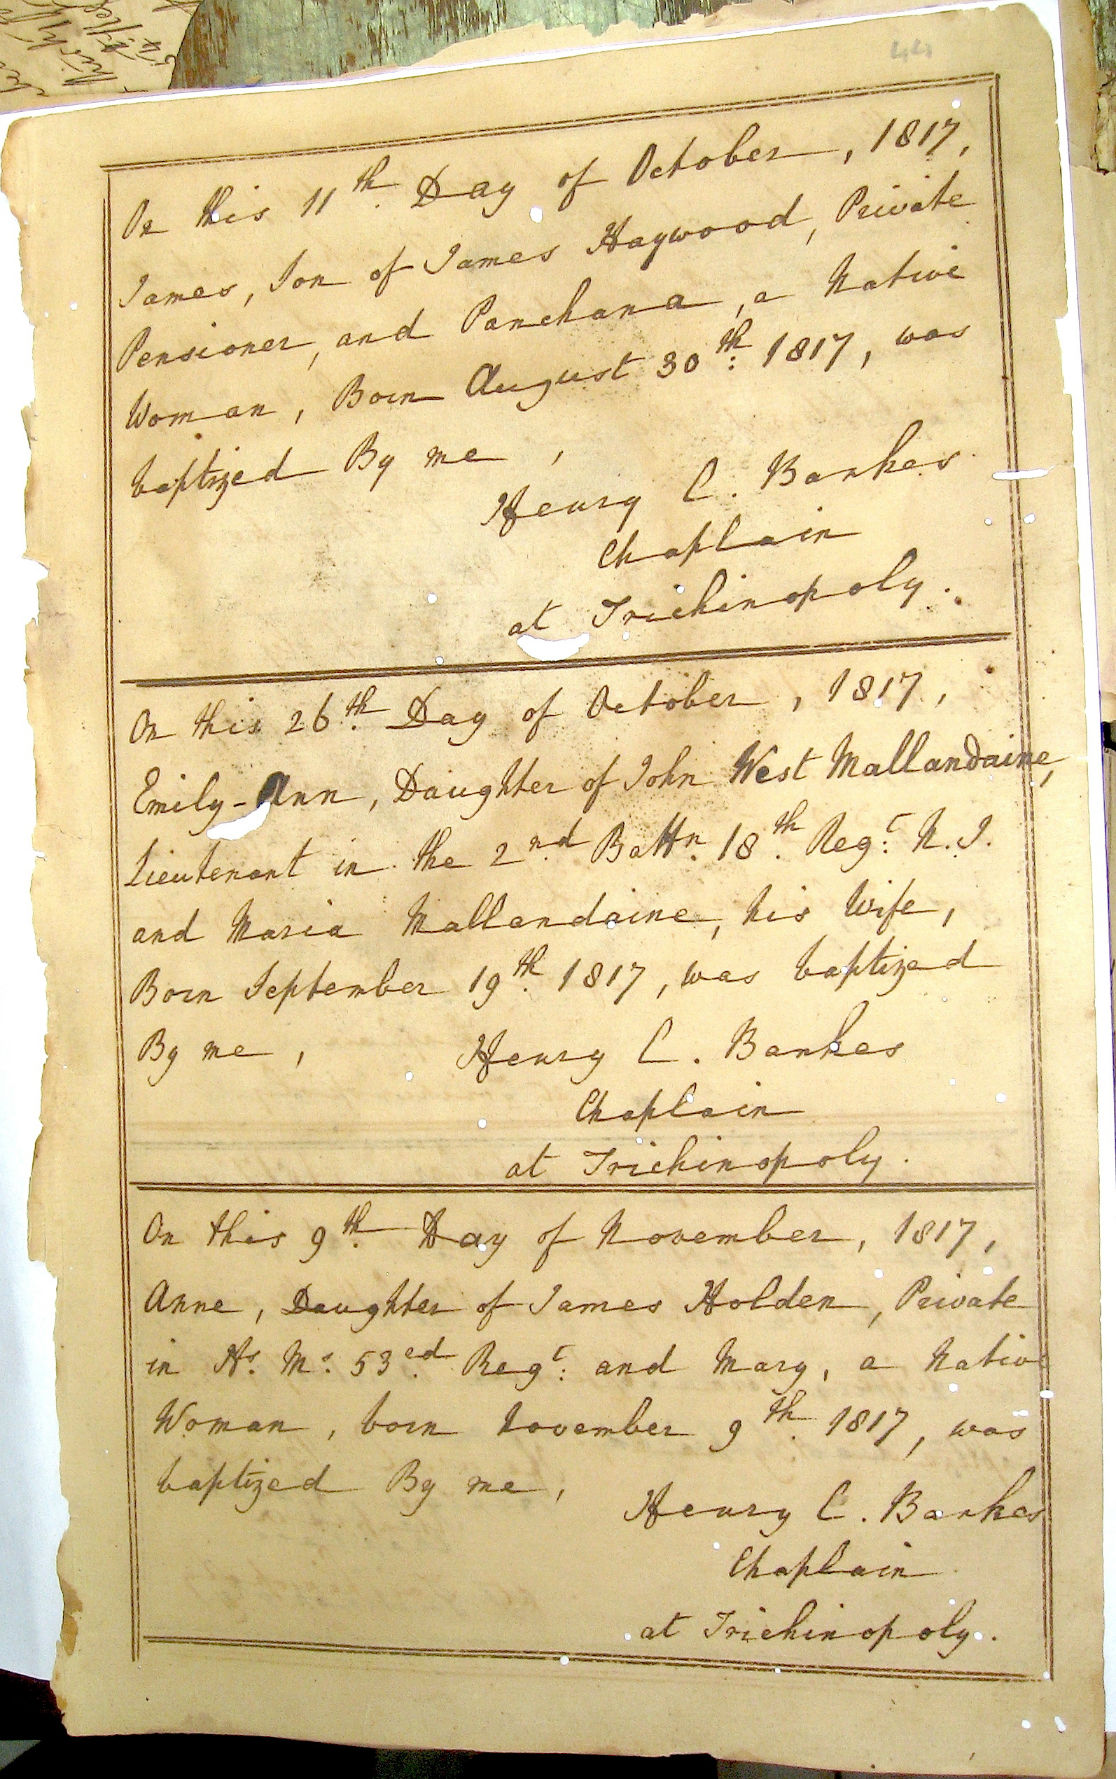 44
On this 11th. Day of October, 1817,
James, Son of James Haywood, Private
Pensioner, and Panchana, a Native
Woman, Born August 30th: 1817, was
baptized By me,
Henry C. Bankes
Chaplain
at Trichinopoly.
On this 26th. Day of October, 1817,
Emily-Ann, Daughter of John West Mallandaine,
Lieutenant in the 2nd. Battn. 18th. Regt: N.I.
and Maria Mallandaine, his Wife,
Born September 19th. 1817, was baptized
By me,
Henry C. Bankes
Chaplain
at Trichinopoly.
On this 9th. Day of November, 1817,
Anne, Daughter of James Holden, Private
in Hs. Ms. 53ed. Regt: and Mary, a Native
Woman, born November 9th. 1817, was
baptized By me,
Henry C. Bankes
Chaplain
at Trichinopoly.